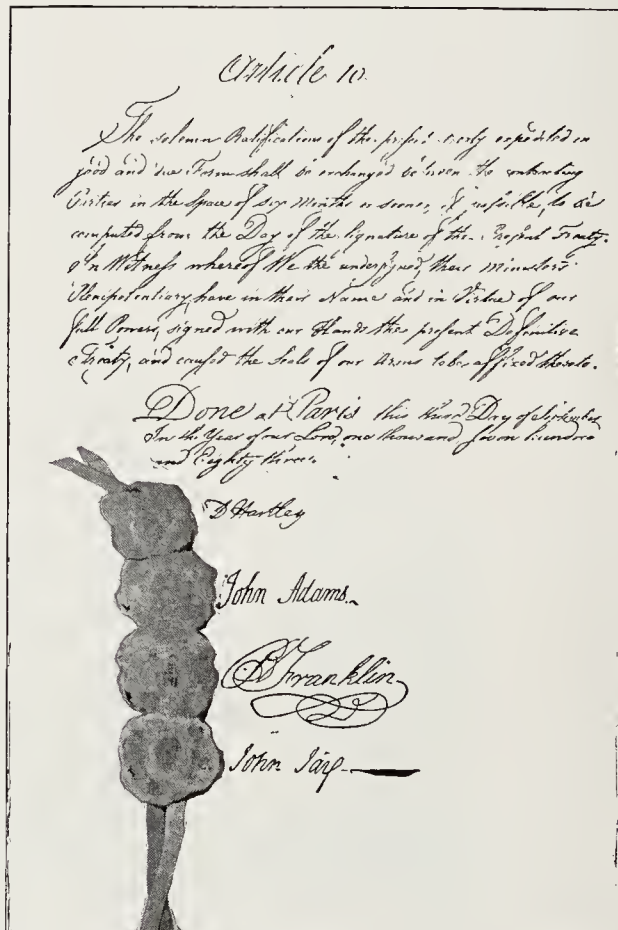 Article 10.
The solemn Ratifications of the present expedited in
good and due Form shall be exchanged between the contracting
Parties in the Space of six Months or sooner, if possible, to be
computed from the Day of the Signature of the Present Treaty.
In Witness whereof We the undersigned, their Ministers
Plenipotentiary, have in their Name and in Virtue of our
full Powers, signed with our Hands the present Definitive
Treaty, and caused the Seals of our Arms to be affixed thereto.
Done at Paris this third Day of September
In the Year of our Lord, one thousand seven hundred
and Eighty three.
D Hartley
John Adams.
B Franklin
John Jay